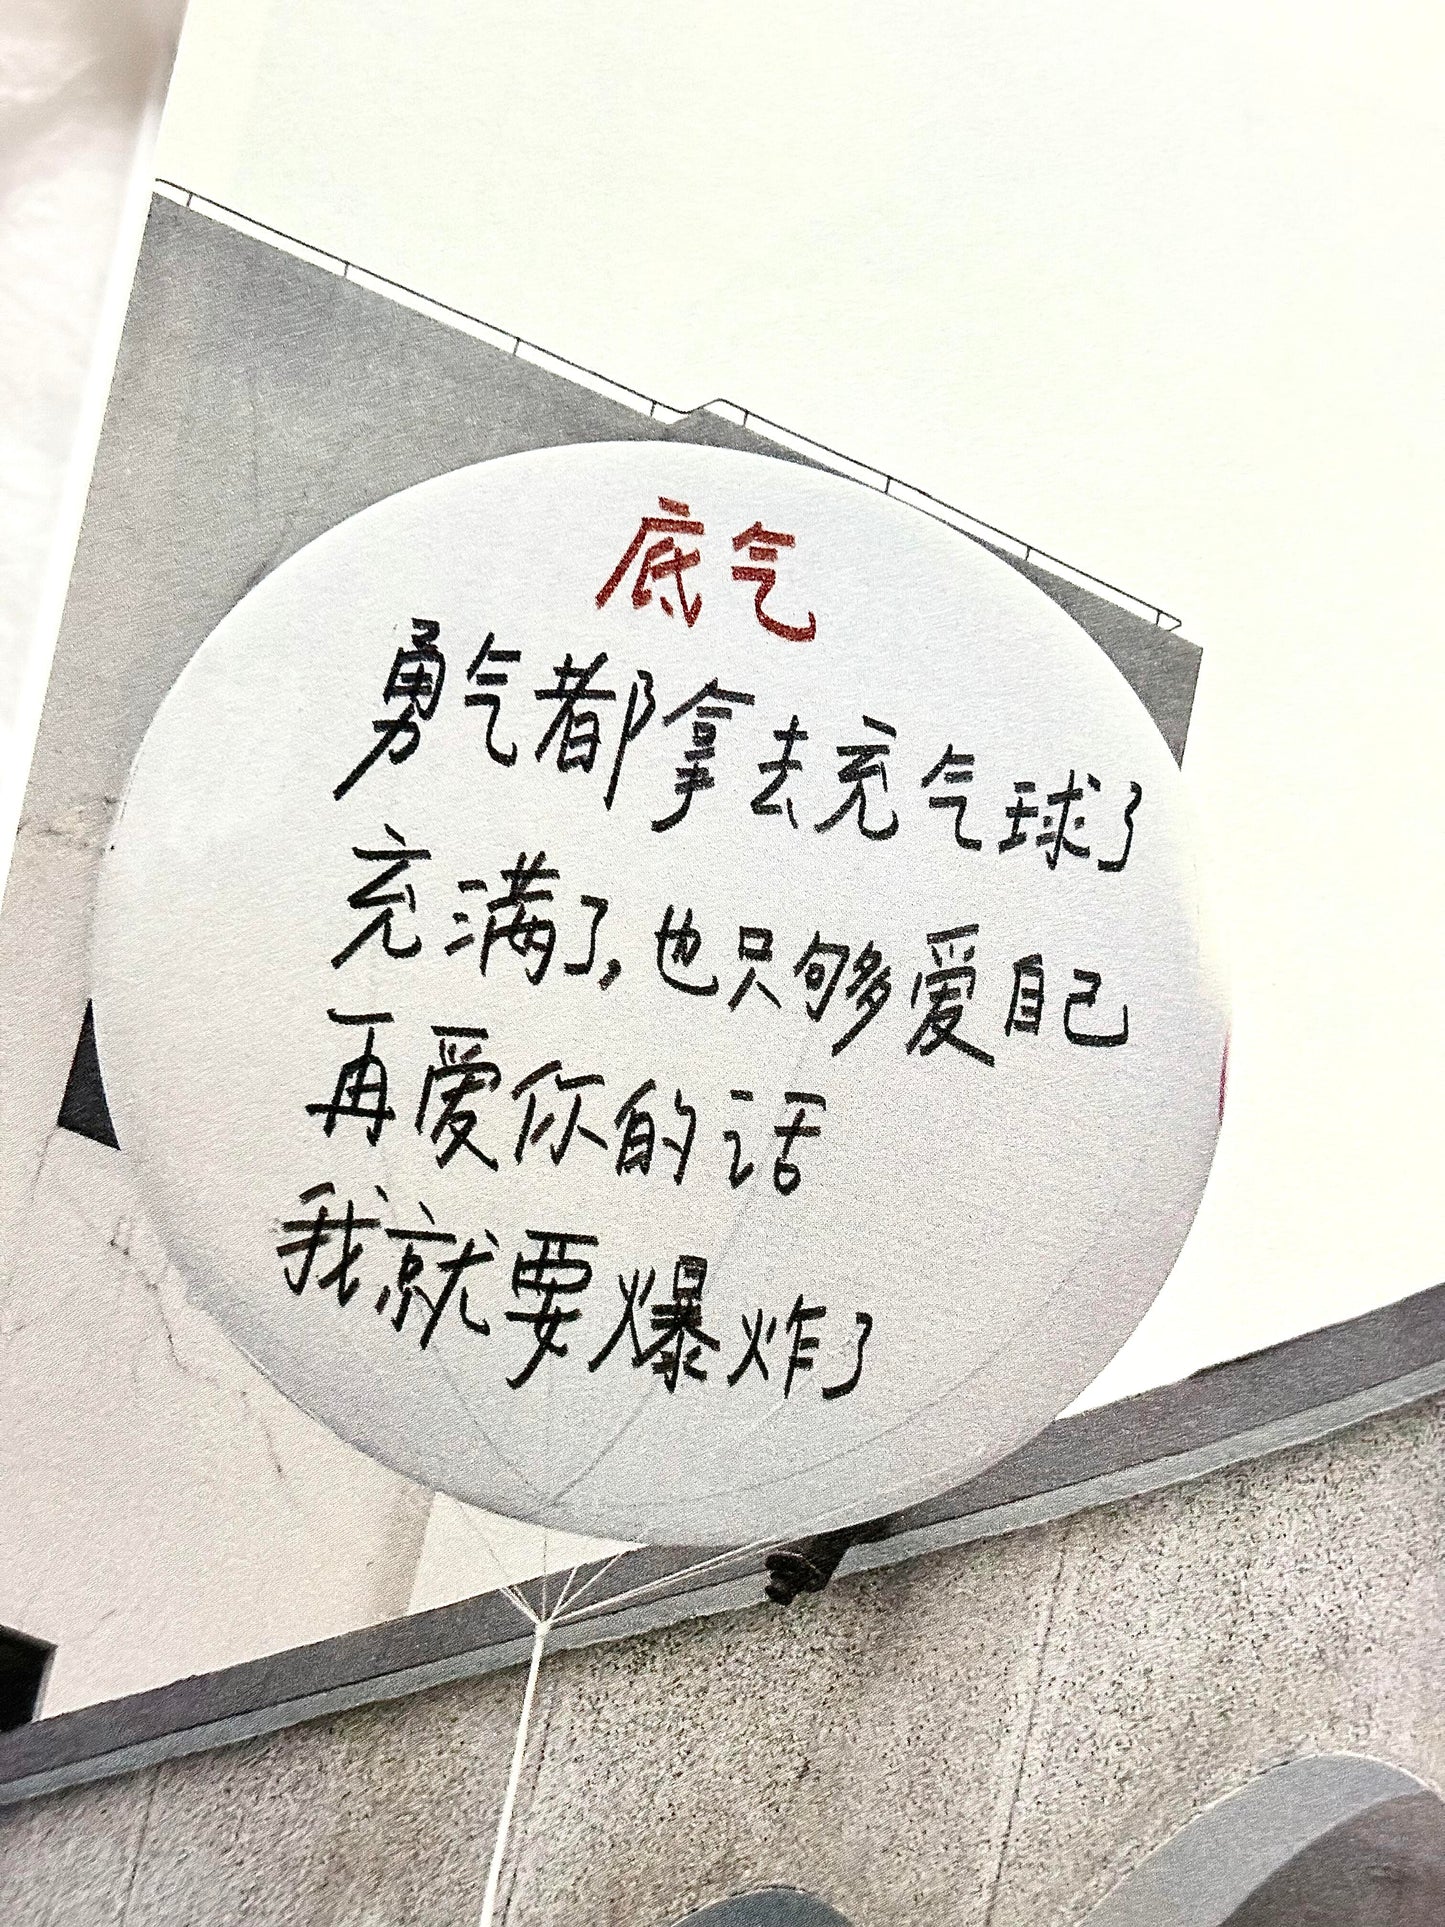 底气
勇气都拿去充气球了
充满了,也只够爱自己
再爱你的话
我就要爆炸了